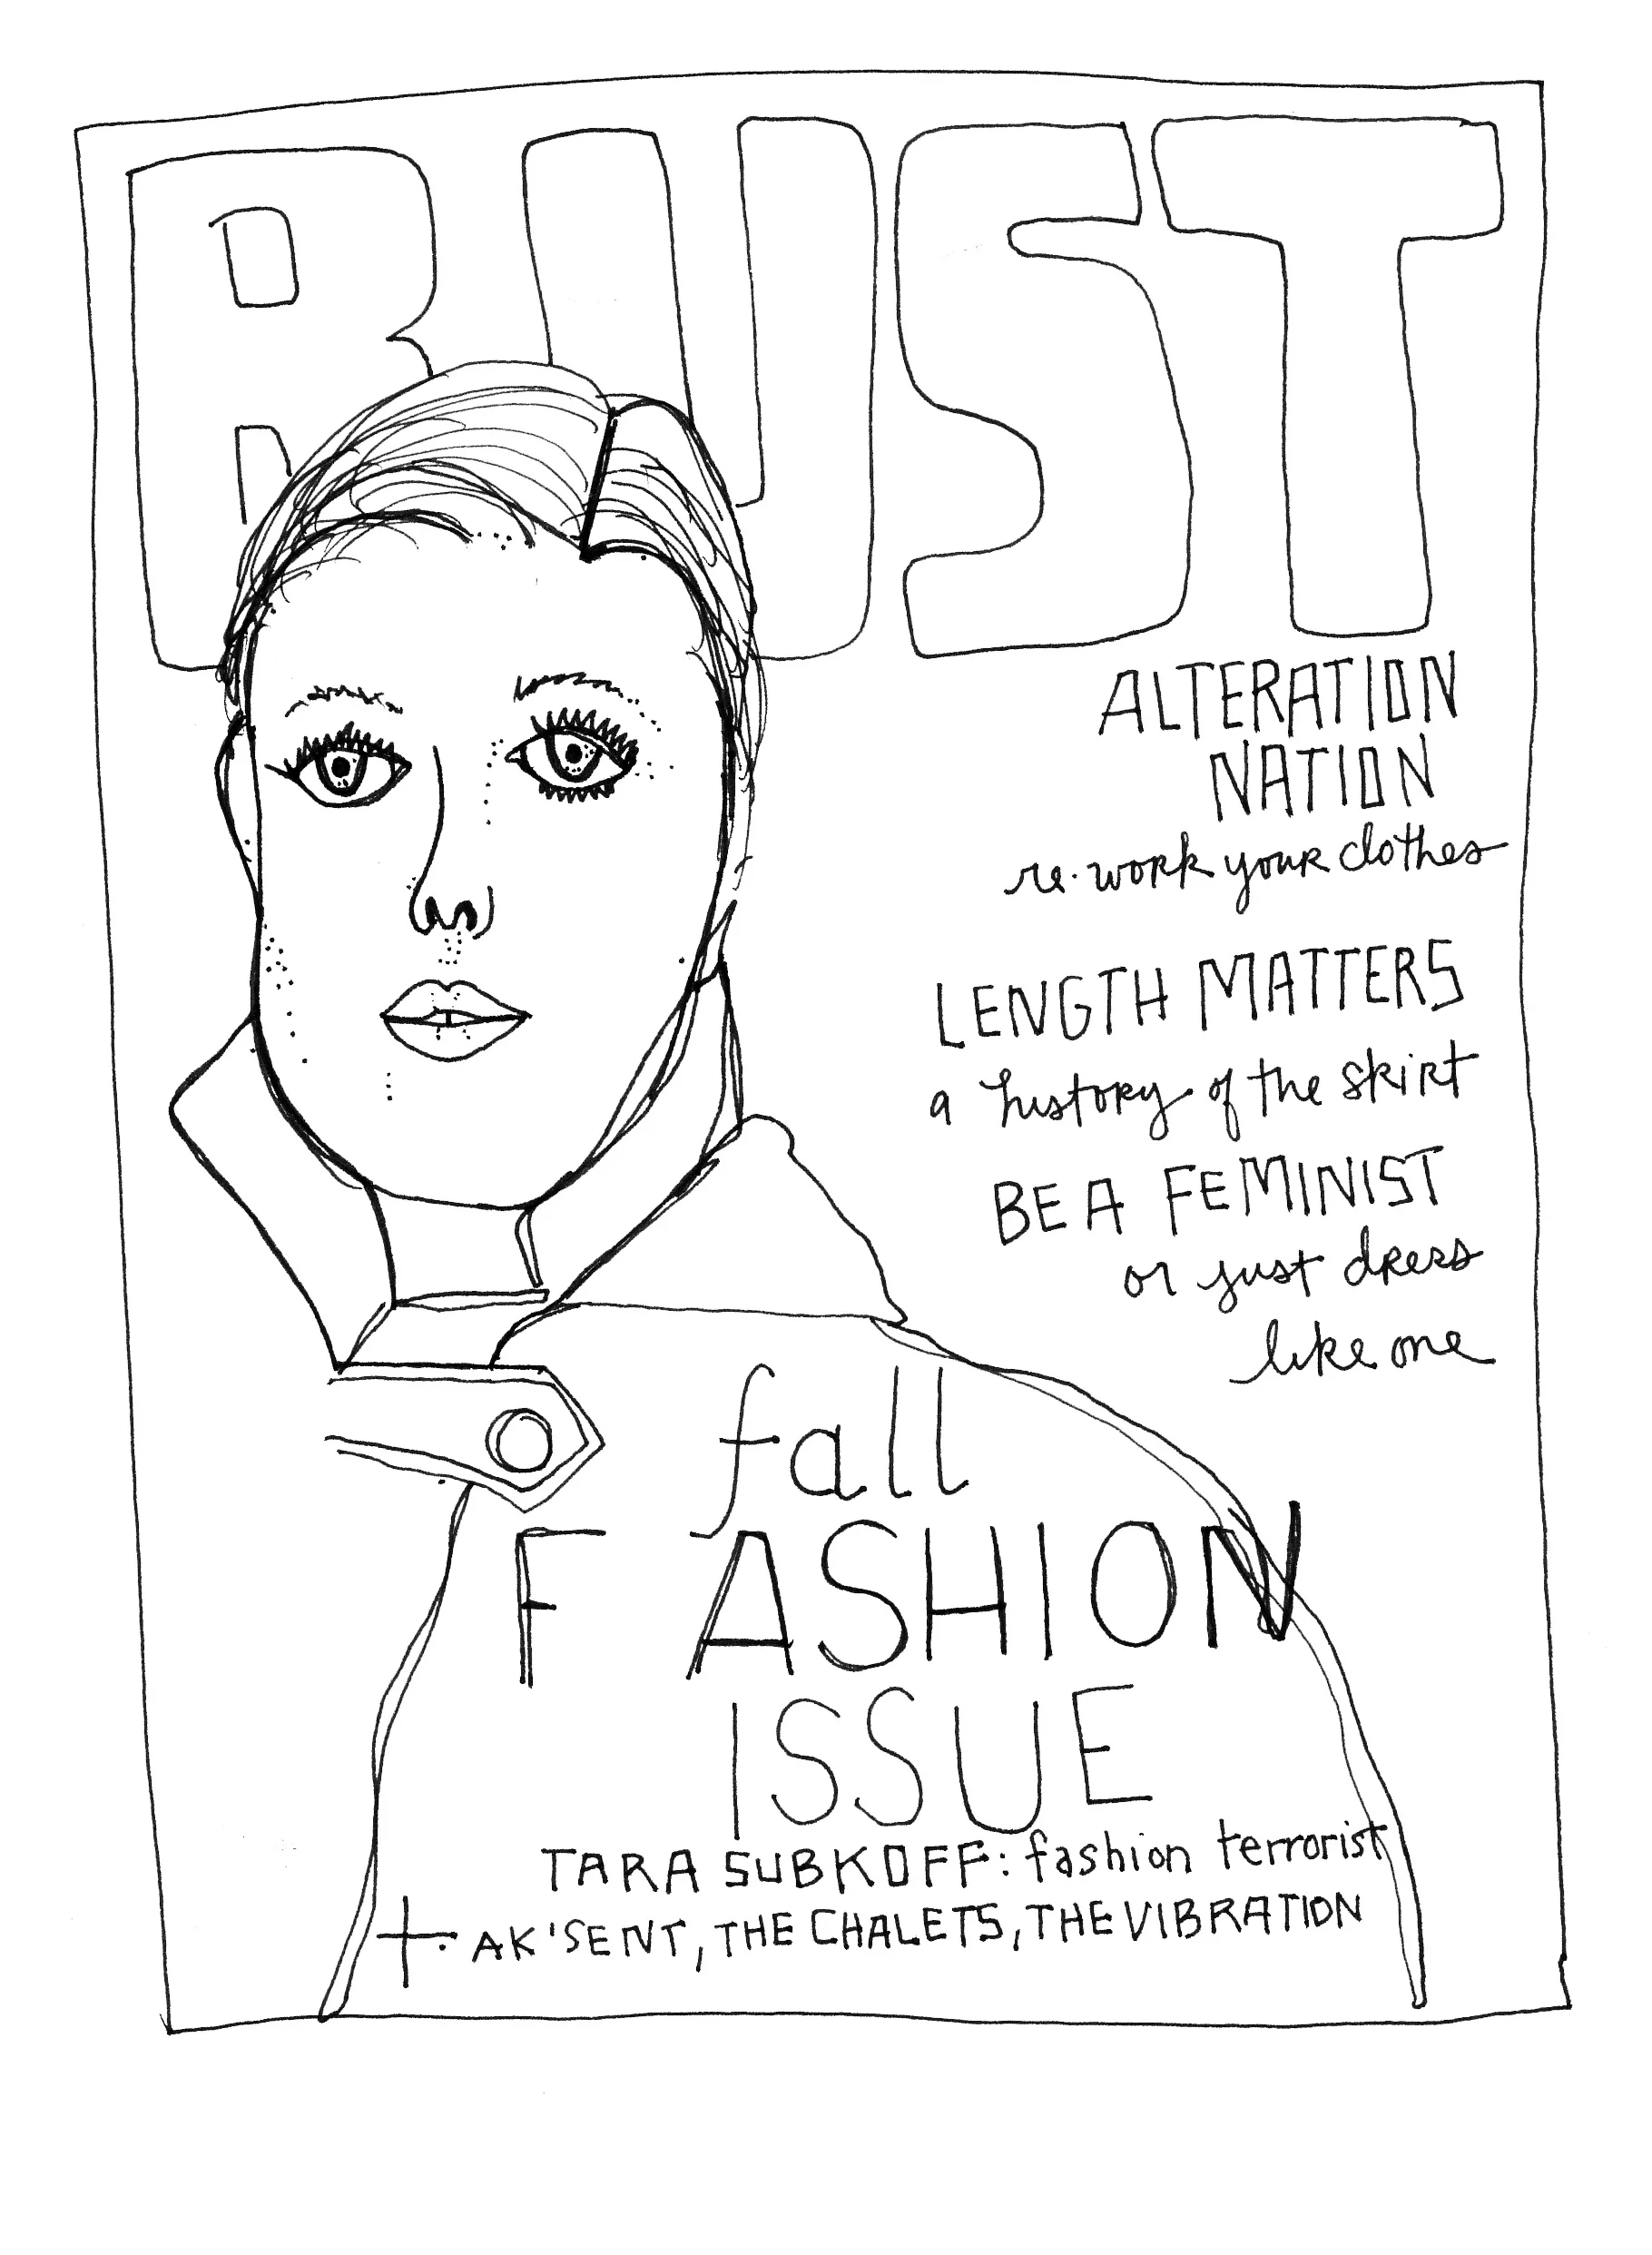 BUST
ALTERATION
NATION
re-work your clothes
LENGTH MATTERS
a history of the skirt
BE A FEMINIST
or just dress
like one
fall
FASHION
ISSUE
TARA SUBKOFF: fashion terrorist
+ AK'SENT, THE CHALETS, THE VIBRATION